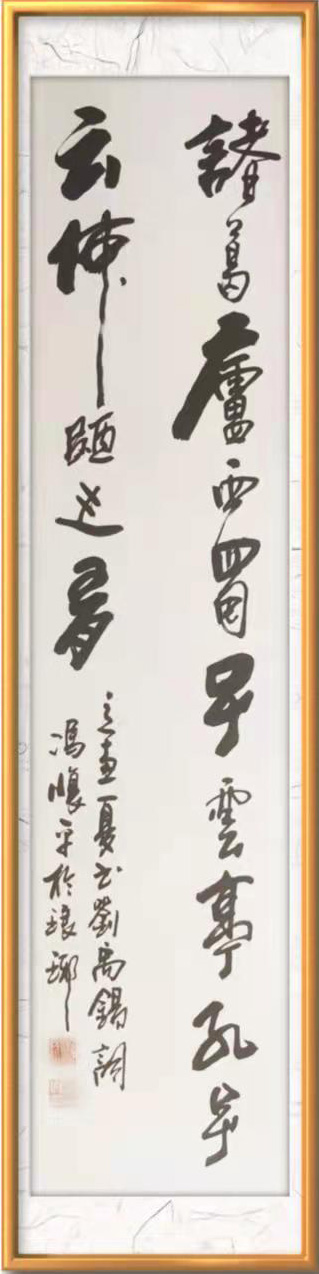 諸葛廬西蜀子雲亭孔子
云何陋之有
夏书劉禹錫詞
馮平於琅琊